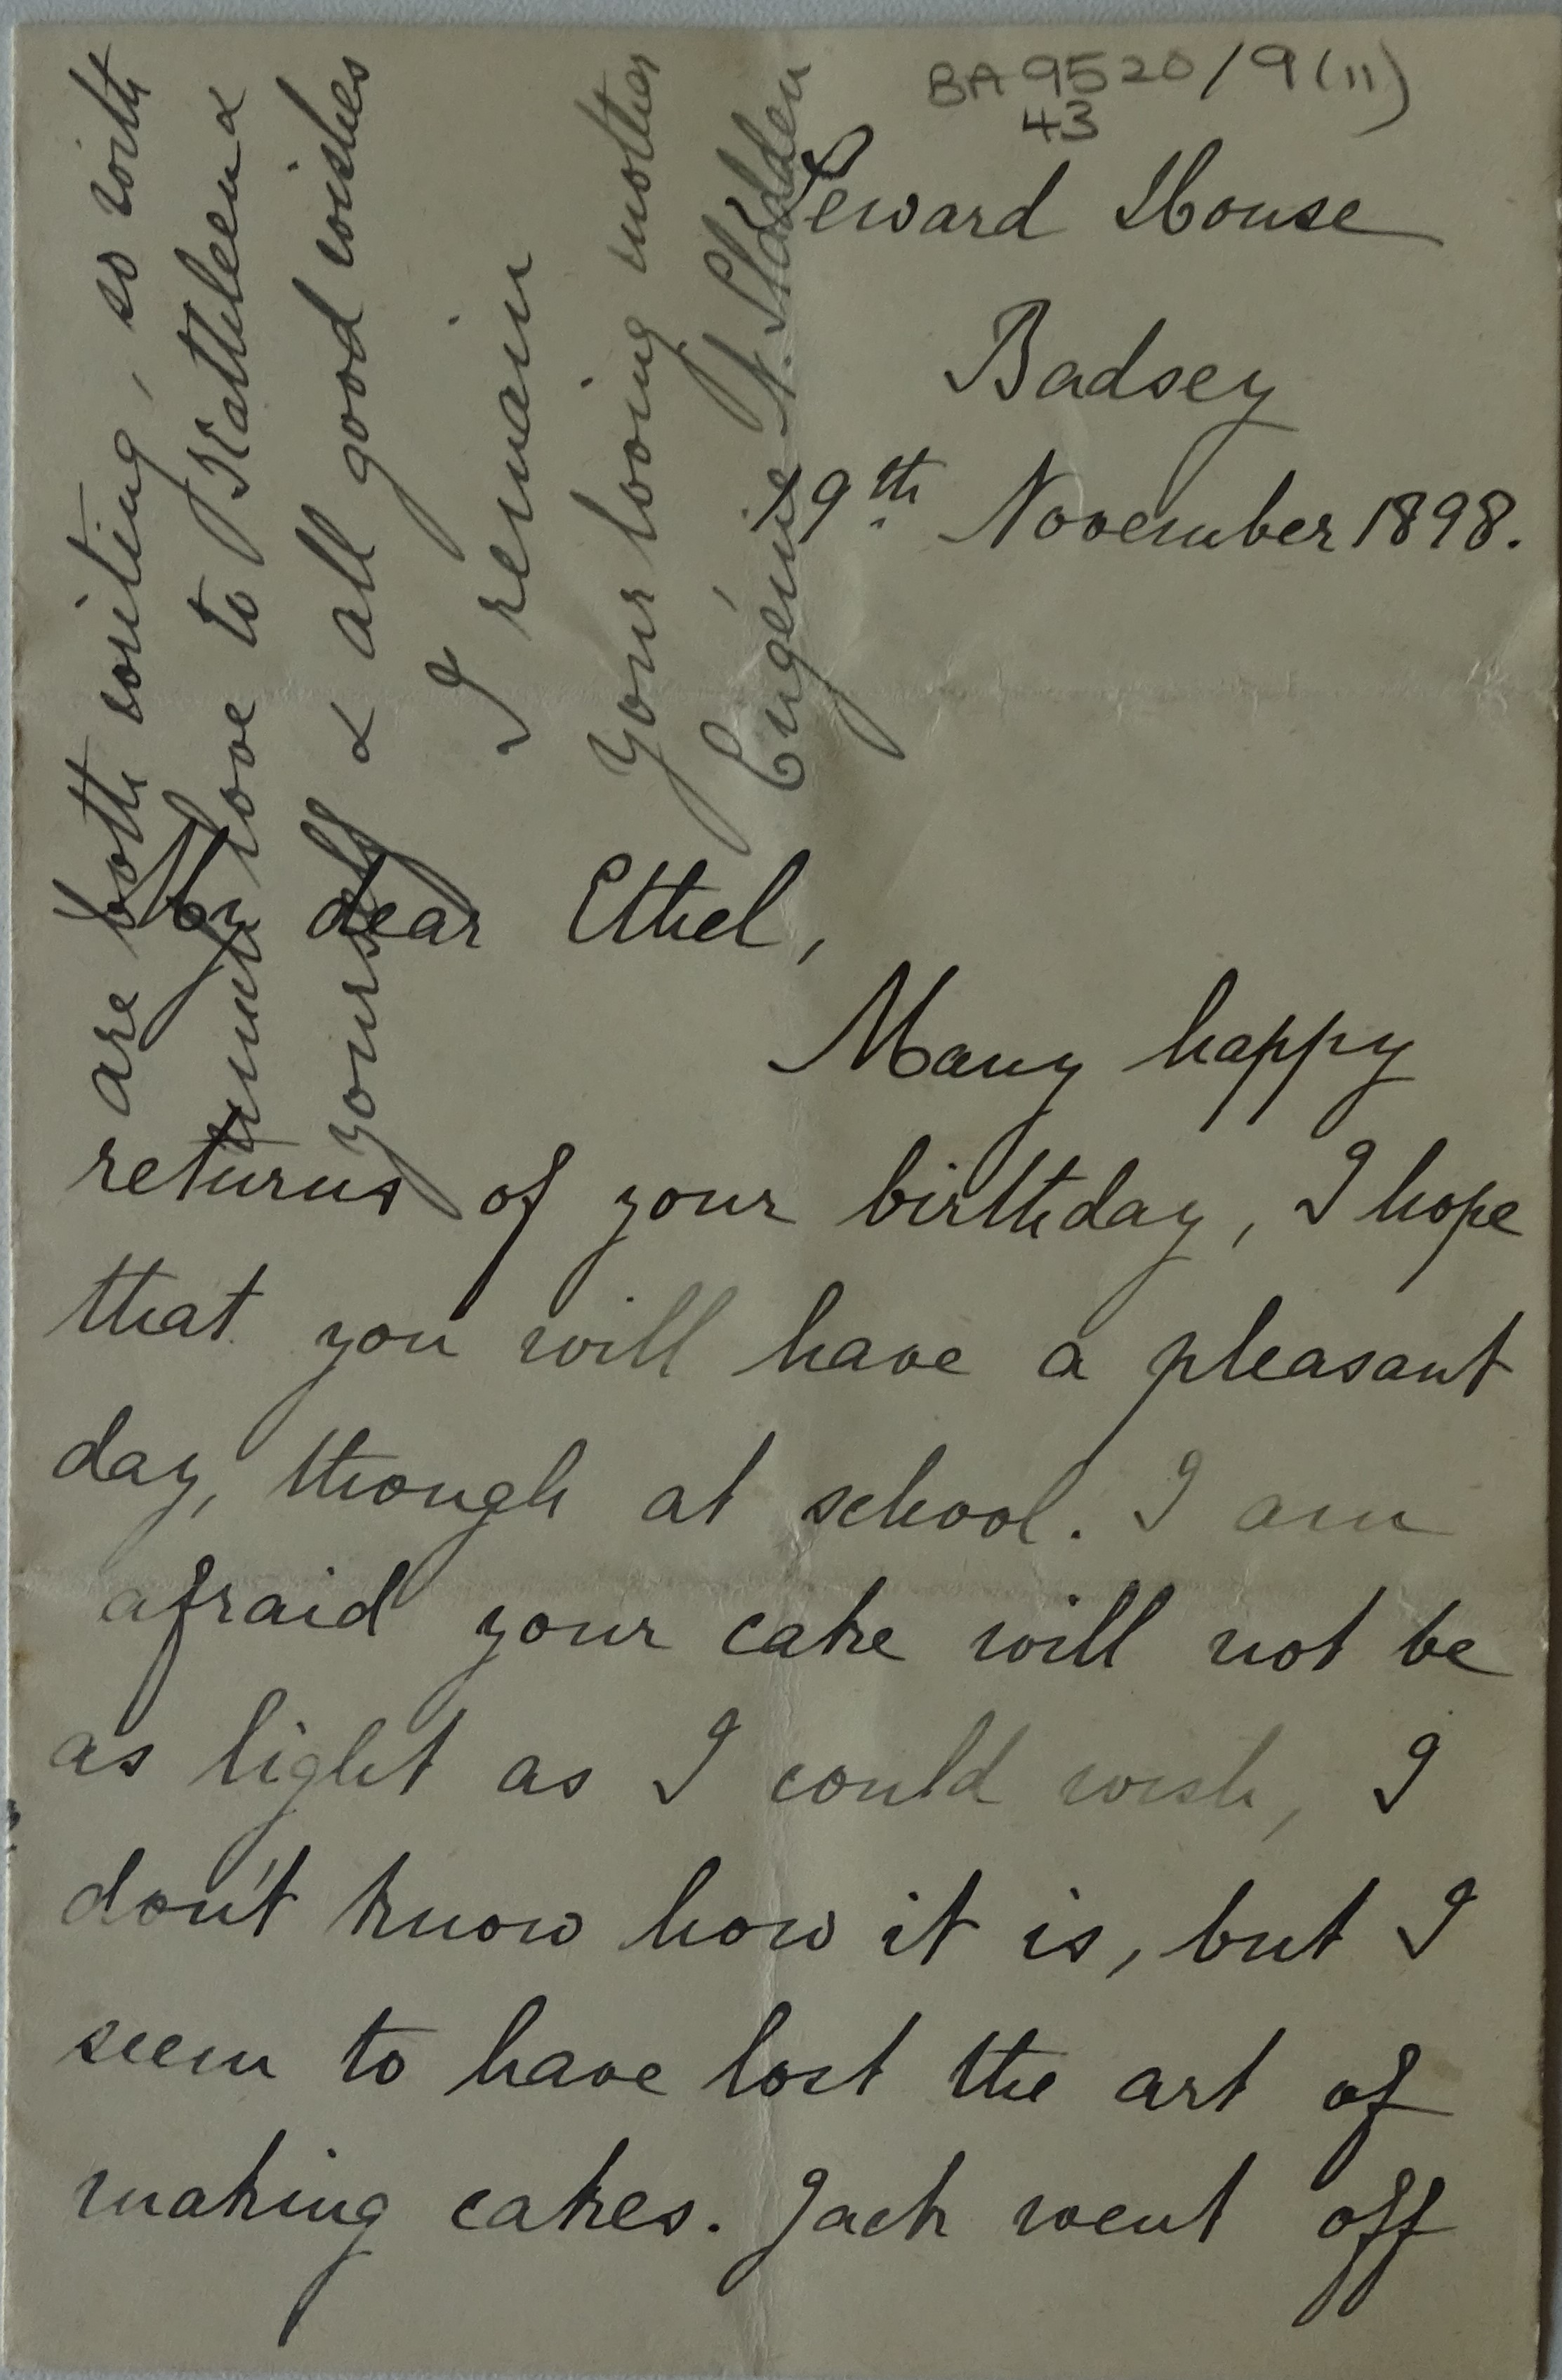 BA 9520/9(11)
43
Seward House
Badsey
19th November 1898.
My dear Ethel,
Many happy
returns of your birthday, I hope
that you will have a pleasant
day, though at school. I am
afraid your cake will not be
as light as I could wish, I
don't know how it is, but I
seem to have lost the art of
making cakes. Jack went off
are both writing, so with
much love to Kathleen &
yourself & all good wishes
I remain
Your loving mother
Eugénie N. Sladden